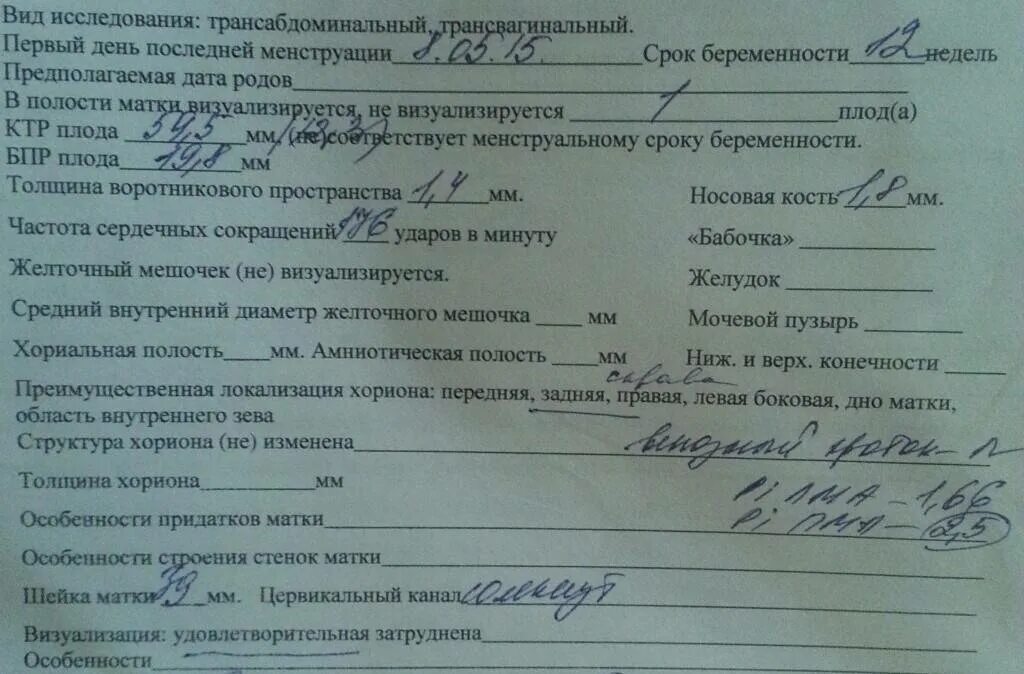 Вид исследования: трансабдоминальный, трансвагинальный.
Первый день последней менструации 8.05.15. Срок беременности 12 недель
Предполагаемая дата родов
В полости матки визуализируется, не визуализируется 1 плод(а)
КТР плода 59,5 мм, (не) соответствует менструальному сроку беременности.
БПР плода 19,8 мм
Толщина воротникового пространства 1,4 мм. Носовая кость 1,8 мм.
Частота сердечных сокращений 176 ударов в минуту «Бабочка»
Желточный мешочек (не) визуализируется. Желудок
Средний внутренний диаметр желточного мешочка мм Мочевой пузырь
Хориальная полость мм. Амниотическая полость мм Ниж. и верх. конечности
справа
Преимущественная локализация хориона: передняя, задняя, правая, левая боковая, дно матки,
область внутреннего зева
Структура хориона (не) изменена венозный проток - N
Толщина хориона мм Pi ЛМА - 1,66
Особенности придатков матки Pi ПМА - 2,5
Особенности строения стенок матки
Шейка матки 39 мм. Цервикальный канал сомкнут
Визуализация: удовлетворительная затруднена
Особенности